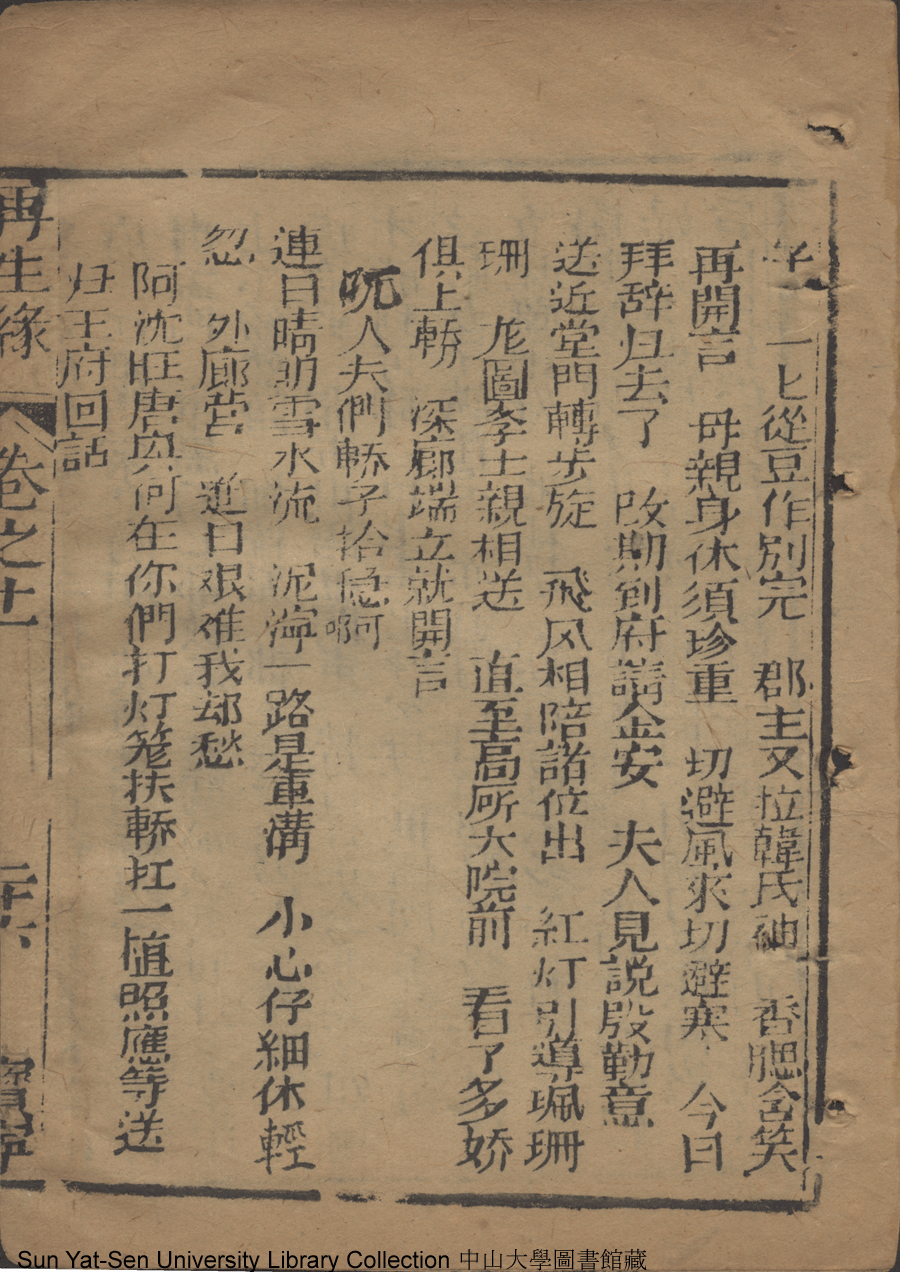 一匕從豆作別完　郡主又拉韓氏袖　香腮含笑
再開言　母親身休須珍重　切避風來切避寒　今日
拜辞归去了　改期到府請金安　夫人見説殷勤意
送近堂門轉步旋　飛风相陪諸位出　紅灯引導珮珊
珊　尨圖李士親相送　直至高所大院前　看了多娇
俱上轎　深廊端立就開言
吪人夫們轎子抬穏啊
連日晴明雪水流　泥濘一路是車溝　小心仔細休輕
忽　外廊营　進日艰难我却愁
阿沈旺唐興何在你們打灯笼扶轎扛一植照應等送
归王府回話
再生緣　卷之十一　二十六　寶寧
Sun Yat-Sen University Library Collection 中山大學圖書館藏